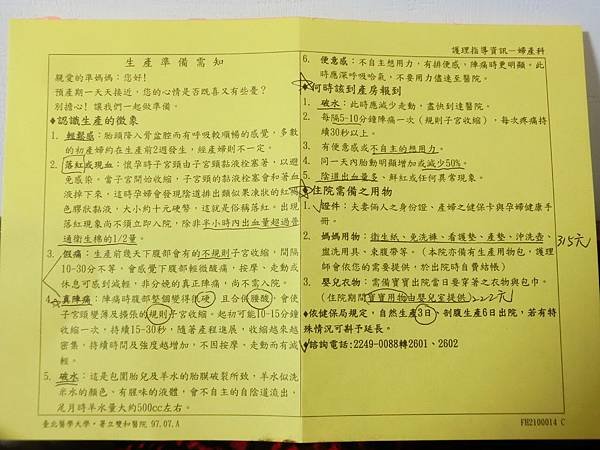 護理指導資訊—婦產科
生產準備需知
親愛的準媽媽：您好!
預產期一天天接近，您的心情是否既喜又有些憂?
別擔心! 讓我們一起做準備。
♦認識生產的徵象
1. 輕鬆感：胎頭降入骨盆腔而有呼吸較順暢的感覺，多數
的初產婦約在生產前2週發生，經產婦則不一定。
2. 落紅或現血：懷孕時子宮頸由子宮頸黏液栓塞著，以避
免感染。當子宮開始收縮，子宮頸的黏液栓塞會和著血
液掉下來，這時孕婦會發現陰道排出類似果凍狀的紅褐
色膠狀黏液，大小約十元硬幣，這就是俗稱落紅。出現
落紅現象尚不須立即入院，除非半小時內出血量超過普
通衛生棉的1/2量。
3. 假痛：生產前幾天下腹部會有的不規則子宮收縮，間隔
10-30分不等，會感覺下腹部輕微酸痛，按摩、走動或
休息可感到減輕，非分娩的真正陣痛，尚不需入院。
4. 真陣痛：陣痛時腹部整個變得很硬，且合併腰酸，會使
子宮頸變薄及擴張的規則子宮收縮。起初可能10-15分鐘
收縮一次，持續15-30秒，隨著產程進展，收縮越來越
密集，持續時間及強度越增加，不因按摩、走動而有減
輕。
5. 破水：這是包圍胎兒及羊水的胎膜破裂所致，羊水似洗
米水的顏色、有腥味的液體，會不自主的自陰道流出，
足月時羊水量大約500cc左右。
臺北醫學大學‧署立雙和醫院 97.07.A
6. 便意感：不自主想用力，有排便感，陣痛時更明顯。此
時應深呼吸哈氣，不要用力儘速至醫院。
♦何時該到產房報到
1. 破水：此時應減少走動，盡快到達醫院。
2. 每隔5-10分鐘陣痛一次（規則子宮收縮），每次疼痛持
續30秒以上。
3. 有便意感或不自主的想用力。
4. 同一天內胎動明顯增加或減少50%。
5. 陰道出血量多、鮮紅或任何異常現象。
♦住院需備之用物
1. 證件：夫妻倆人之身份證、產婦之健保卡與孕婦健康手
冊。
2. 媽媽用物：衛生紙、免洗褲、看護墊、產墊、沖洗壺、
盥洗用具、束腹帶等。（本院亦備有生產用物包，護理
師會依您的需要提供，於出院時自費結帳）
315元
3. 嬰兒衣物：需備寶寶出院當日要穿著之衣物與包巾。
（住院期間寶寶用物由嬰兒室提供）222元
♦依健保局規定，自然生產3日，剖腹生產6日出院，若有特
殊情況可斟予延長。
♦諮詢電話:2249-0088轉2601、2602
FH2100014 C